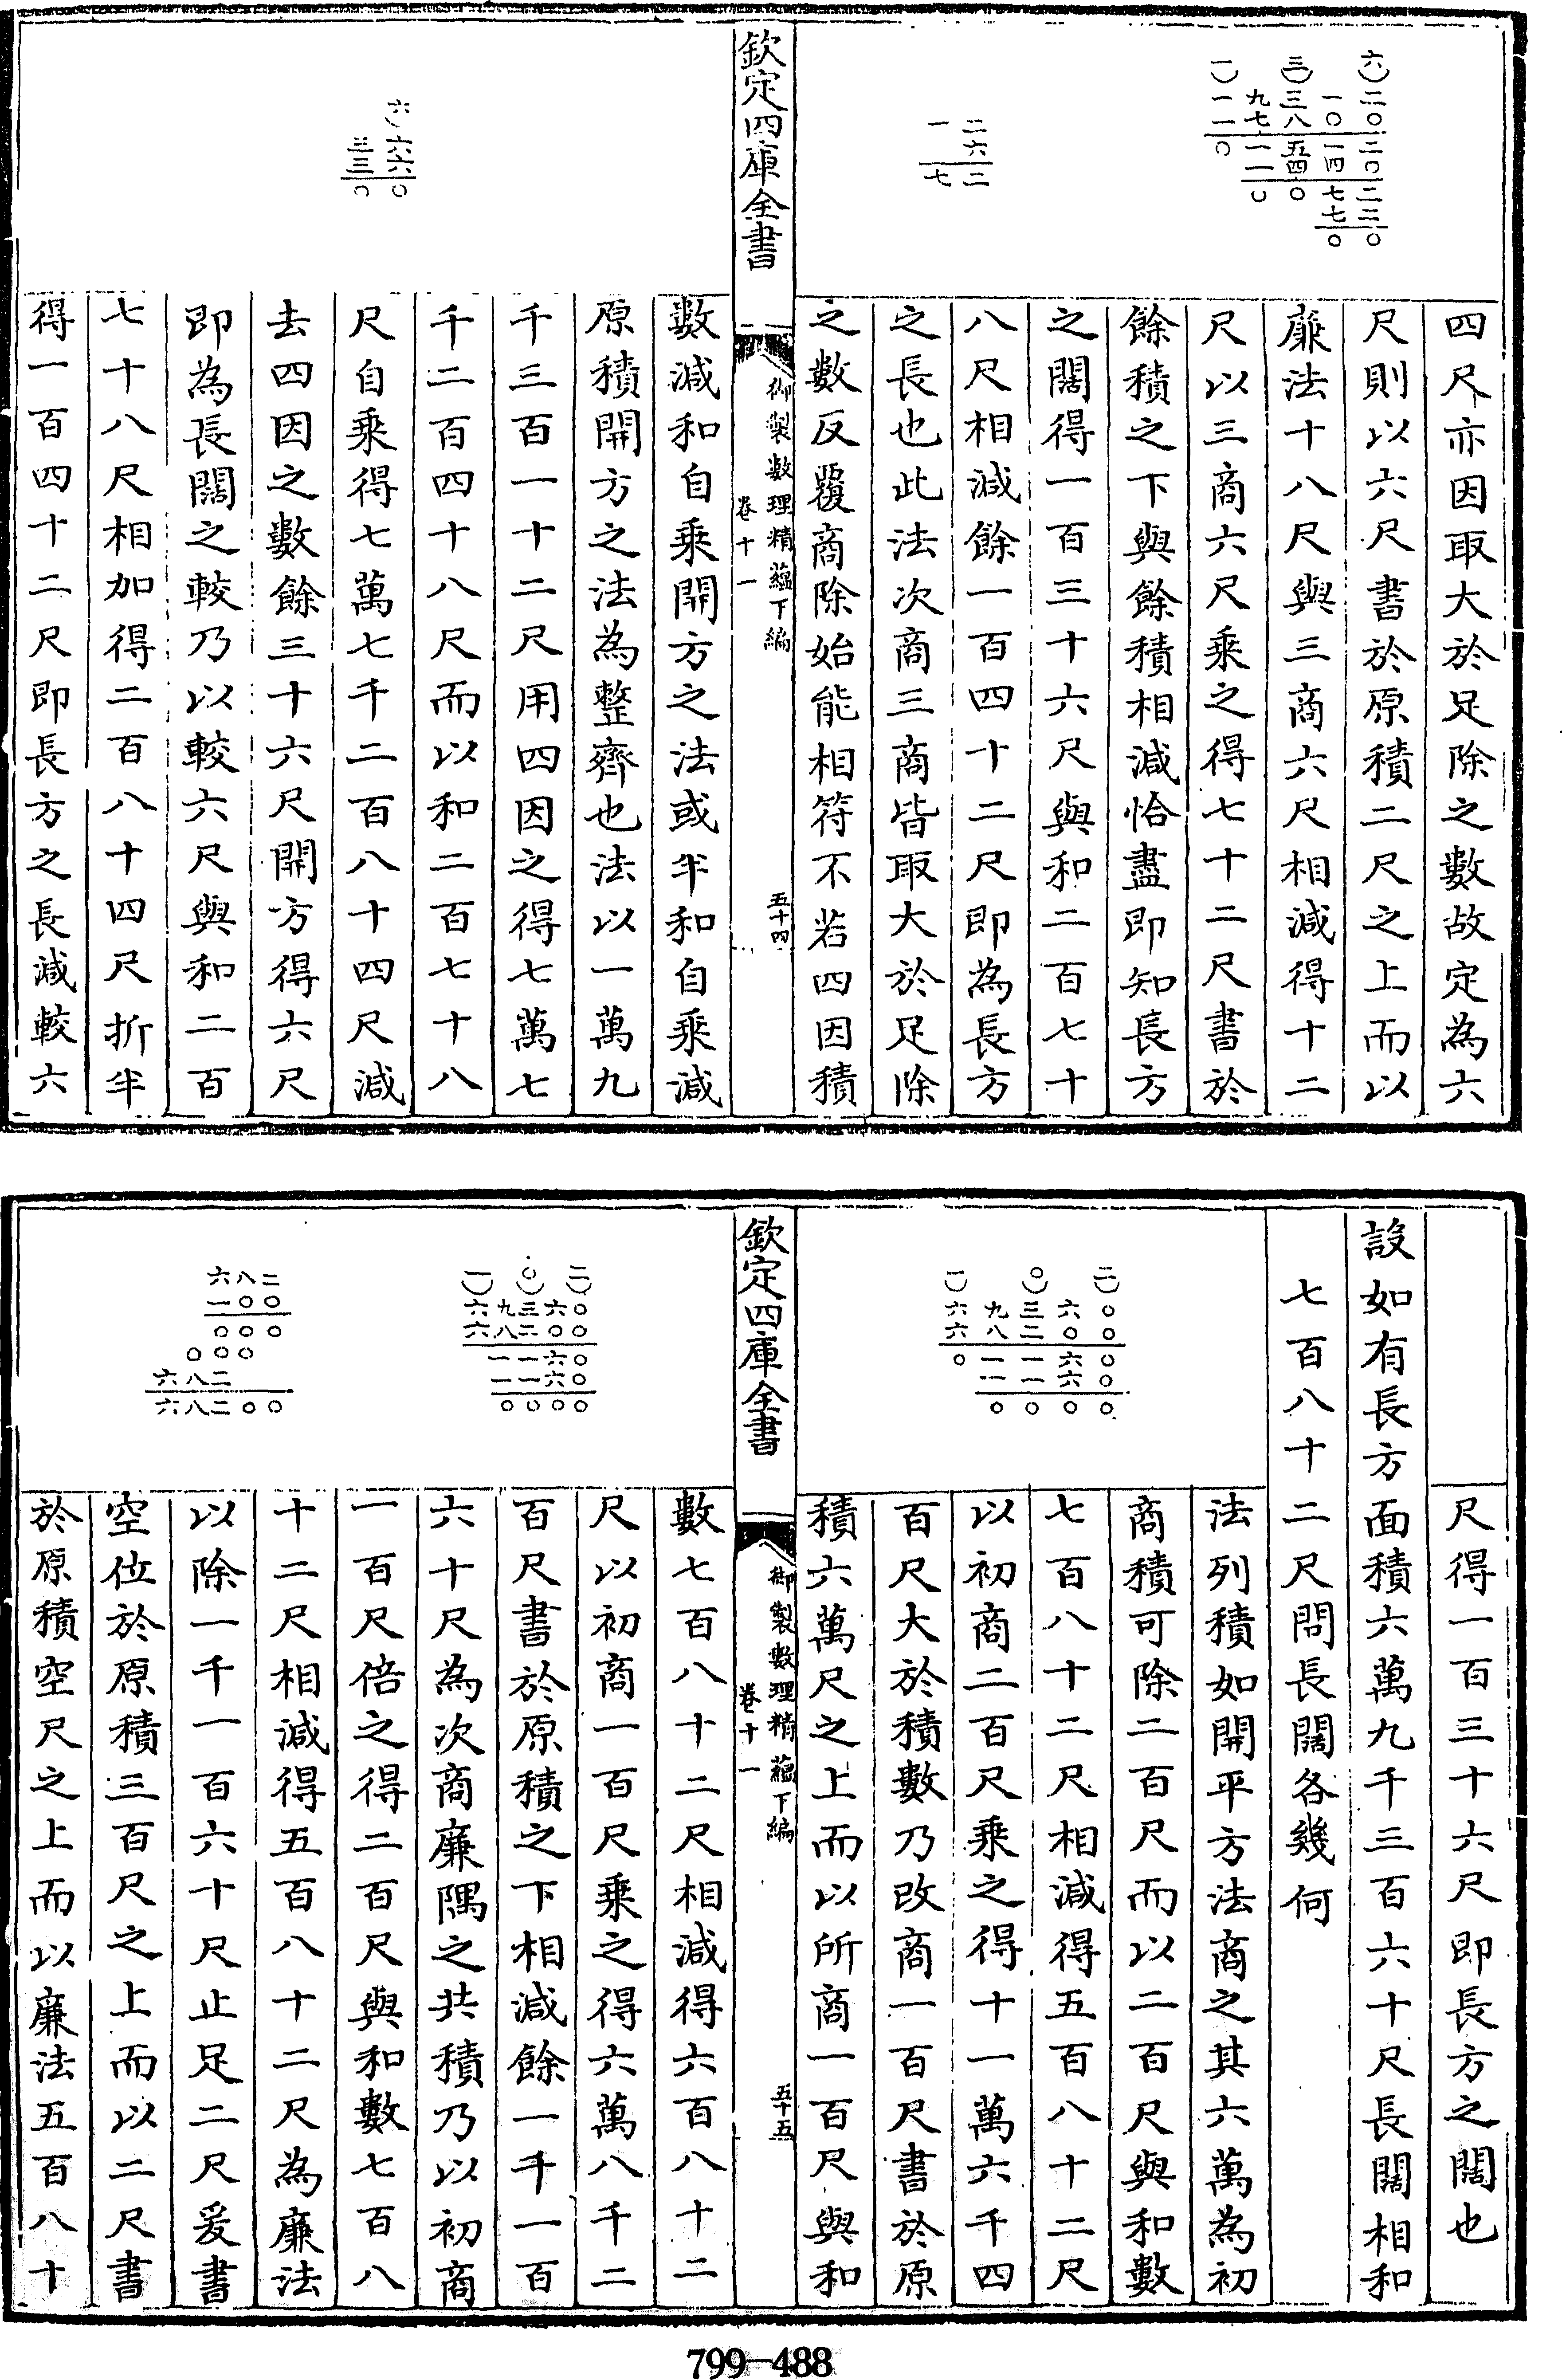 四尺亦因取大於足除之數故定為六
尺則以六尺書於原積二尺之上而以
廉法十八尺與三商六尺相減得十二
尺以三商六尺乘之得七十二尺書於
餘積之下與餘積相減恰盡即知長方
之闊得一百三十六尺與和二百七十
八尺相減餘一百四十二尺即為長方
之長也此法次商三商皆取大於足除
之數反覆商除始能相符不若四因積
欽定四庫全書
御製數理精蘊下編
卷十一
五十四
數減和自乘開方之法或半和自乘減
原積開方之法為整齊也法以一萬九
千三百一十二尺用四因之得七萬七
千二百四十八尺而以和二百七十八
尺自乘得七萬七千二百八十四尺減
去四因之數餘三十六尺開方得六尺
即為長闊之較乃以較六尺與和二百
七十八尺相加得二百八十四尺折半
得一百四十二尺即長方之長減較六
尺得一百三十六尺即長方之闊也
設如有長方面積六萬九千三百六十尺長闊相和
七百八十二尺問長闊各幾何
法列積如開平方法商之其六萬為初
商積可除二百尺而以二百尺與和數
七百八十二尺相減得五百八十二尺
以初商二百尺乘之得十一萬六千四
百尺大於積數乃改商一百尺書於原
積六萬尺之上而以所商一百尺與和
欽定四庫全書
御製數理精蘊下編
卷十一
五十五
數七百八十二尺相減得六百八十二
尺以初商一百尺乘之得六萬八千二
百尺書於原積之下相減餘一千一百
六十尺為次商廉隅之共積乃以初商
一百尺倍之得二百尺與和數七百八
十二尺相減得五百八十二尺為廉法
以除一千一百六十尺止足二尺爰書
空位於原積三百尺之上而以二尺書
於原積空尺之上而以廉法五百八十
799-488